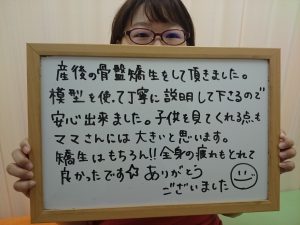 産後の骨盤矯正をして頂きました。
模型を使って丁寧に説明して下さるので
安心出来ました。子供を見てくれる点も
ママさんには大きいと思います。
矯正はもちろん!!全身の疲れもとれて
良かったです☆ ありがとう
ございました